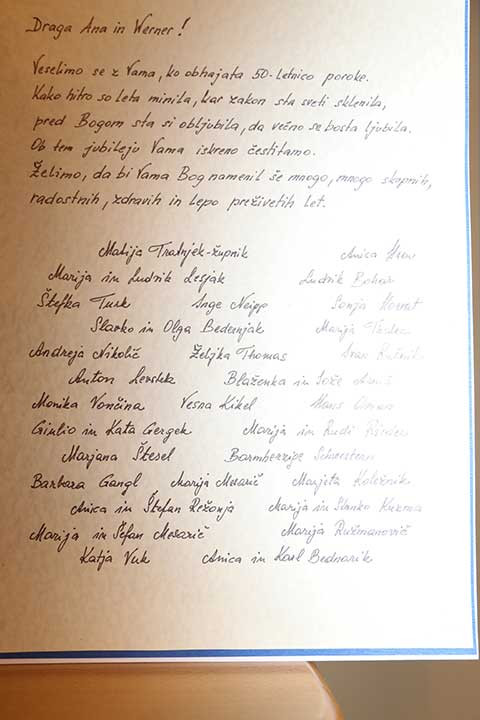 Draga Ana in Werner!
Veselimo se z Vama, ko obhajata 50-letnico poroke.
Kako hitro so leta minila, kar zakon sta sveti sklenila,
pred Bogom sta si obljubila, da večno se bosta ljubila.
Ob tem jubileju Vama iskreno čestitamo.
Želimo, da bi Vama Bog namenil še mnogo, mnogo skupnih,
radostnih, zdravih in lepo preživetih let.
Matija Tratnjek-župnik Anica
Marija in Ludvik Lesjak Ludvik Bohar
Štefka Turk Inge Neipp Sonja Horvat
Slavko in Olga Bedernjak Marija
Andreja Nikolič Željka Thomas Ivan
Anton Levstek Blaženka in Jože
Monika Vončina Vesna Kikel Hans
Giulio in Kata Gergek Marija in Rudi
Marjana Štesel Barmherzige Schwestern
Barbara Gangl Marija Mesarič Marjeta Koležnik
Anica in Štefan Režonja Marija in Stanko Kuzma
Marija in Šefan Mesarič Marija Ružmanovič
Katja Vuk Anica in Karl Bednarik